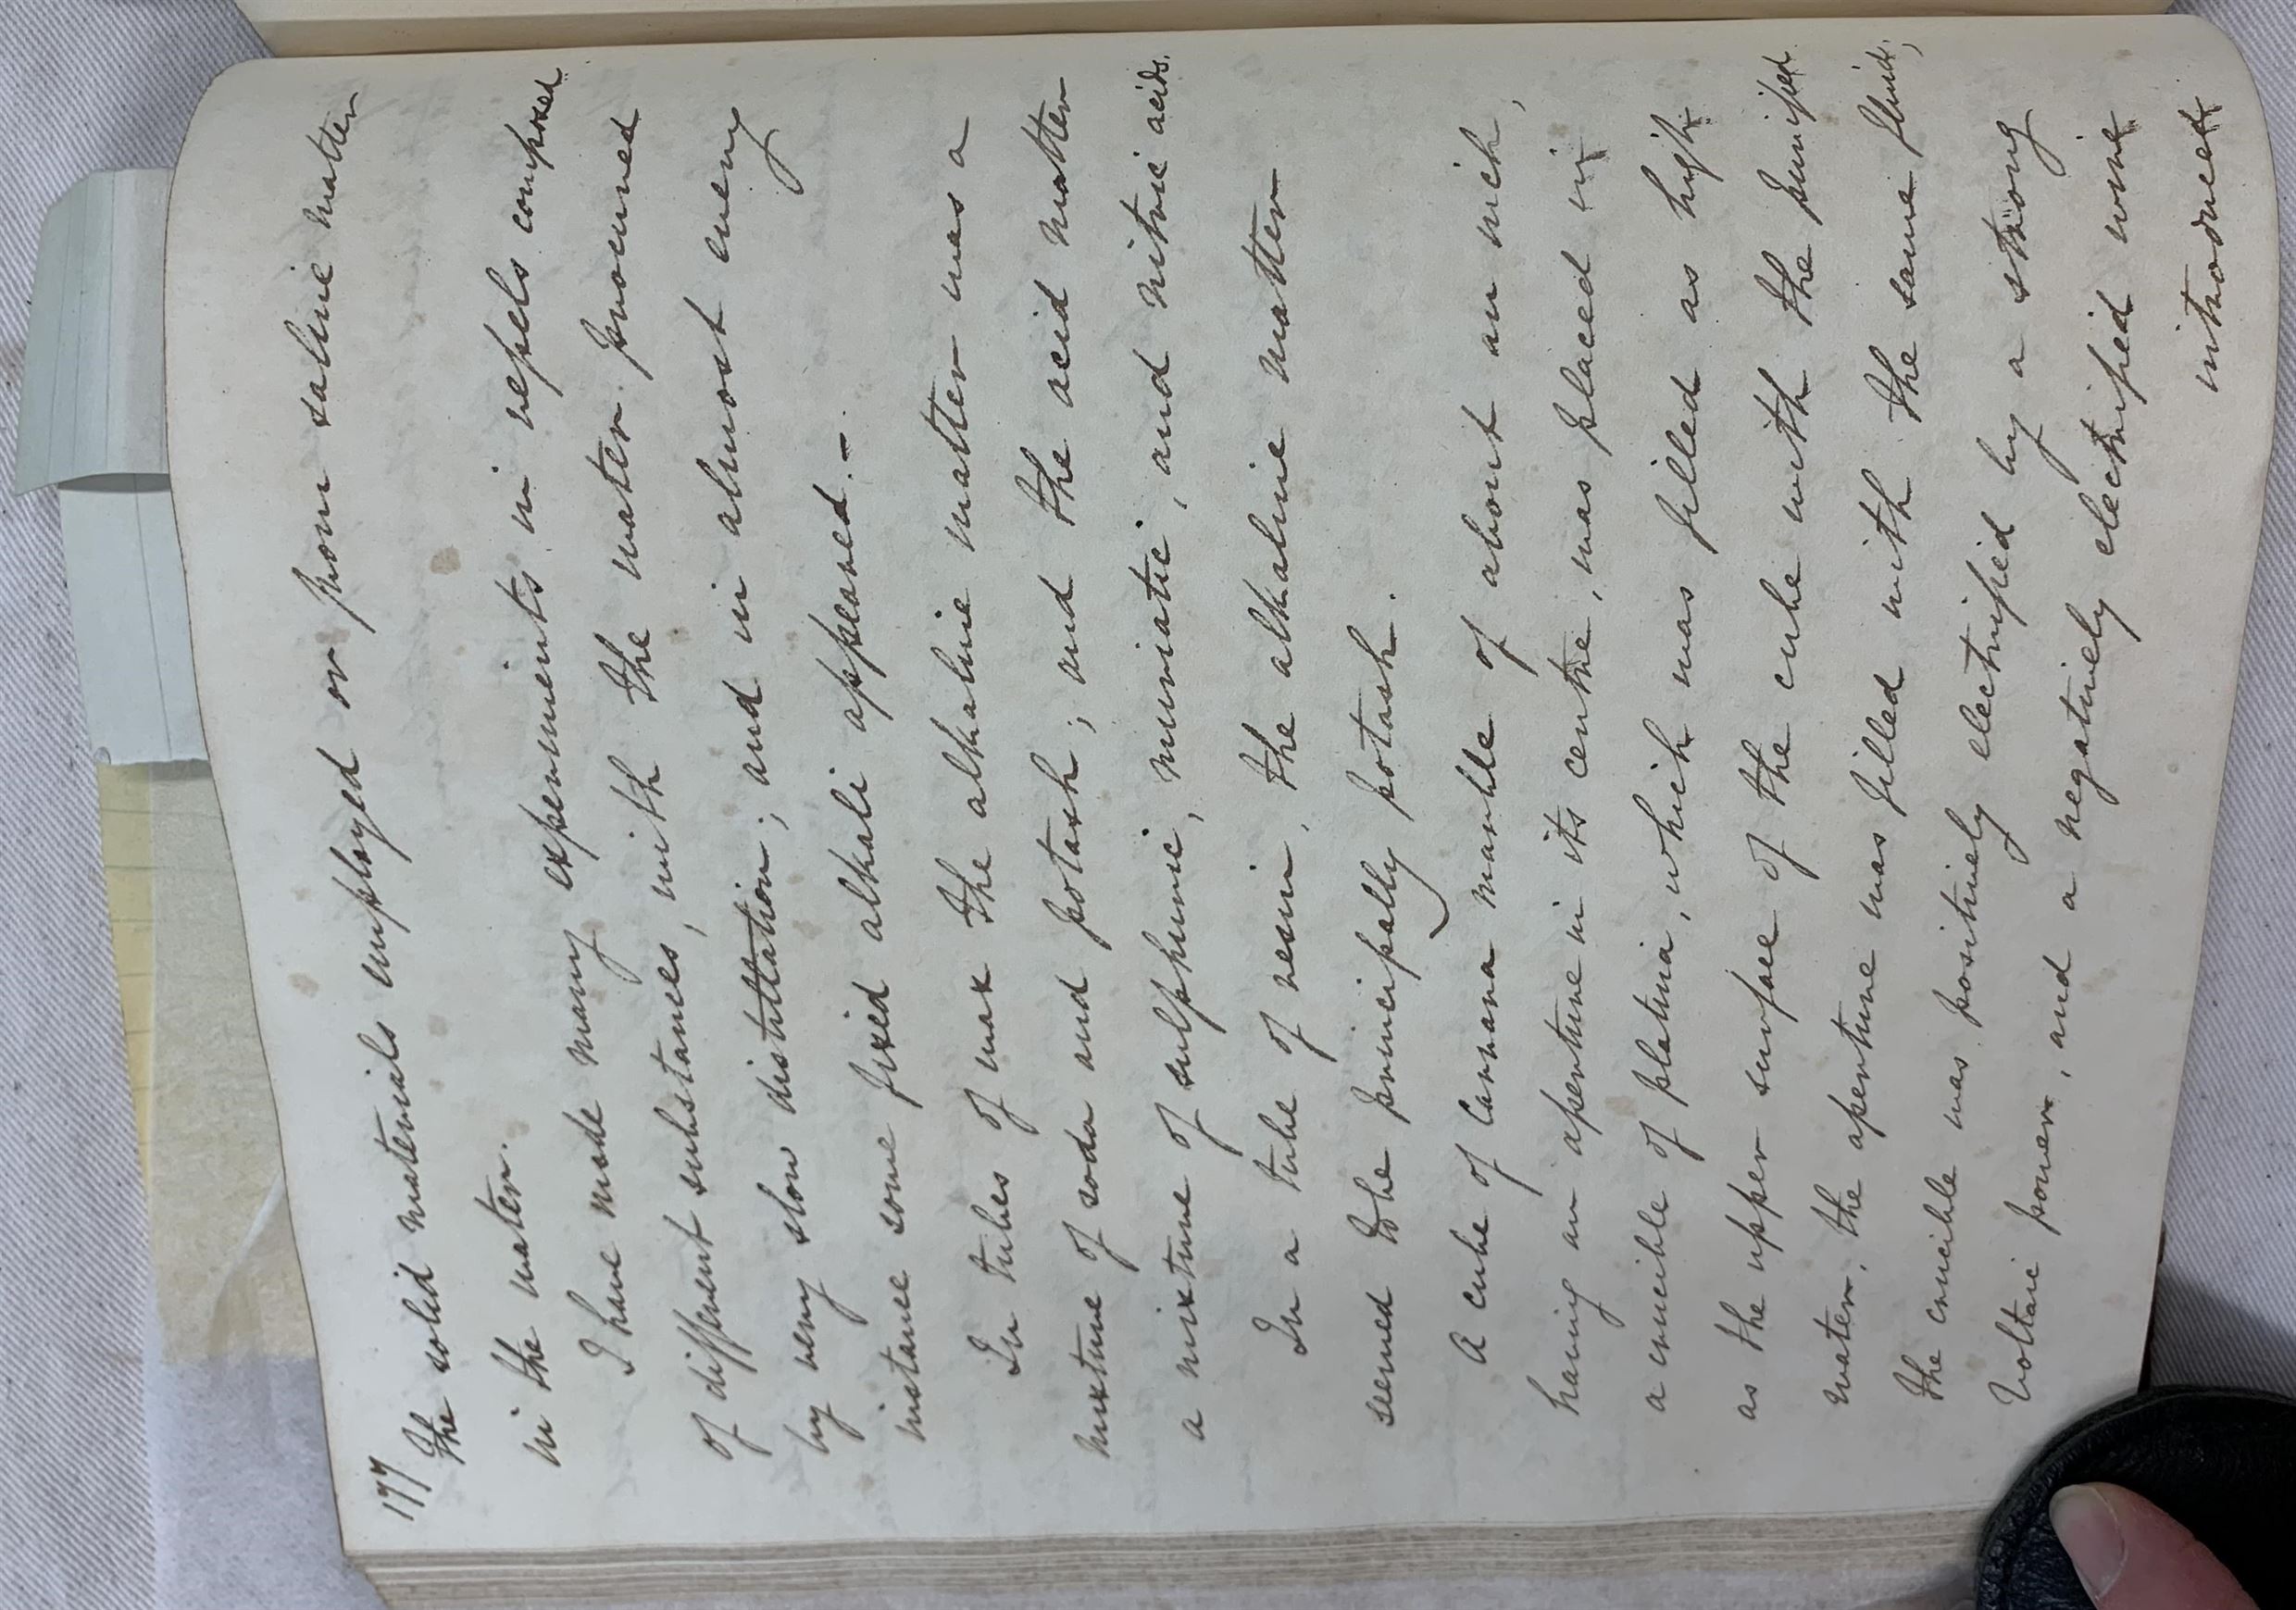 177
the solid materials employed or from saline matter
in the water.
I have made many experiments in vessels composed
of different substances, with the water procured
by very slow distillation; and in almost every
instance some fixed alkali appeared.–
In tubes of wax the alkaline matter was a
mixture of soda and potash; and the acid matter
a mixture of sulphuric, muriatic, and nitric acids.
In a tube of resin, the alkaline matter
seemed to be principally potash.
A cube of Carrara marble of about an inch,
having an aperture in its centre, was placed in
a crucible of platina, which was filled as high
as the upper surface of the cube with the purified
water. the aperture was filled with the same fluid;
the crucible was positively electrified by a strong
Voltaic power, and a negatively electrified wire
introduced